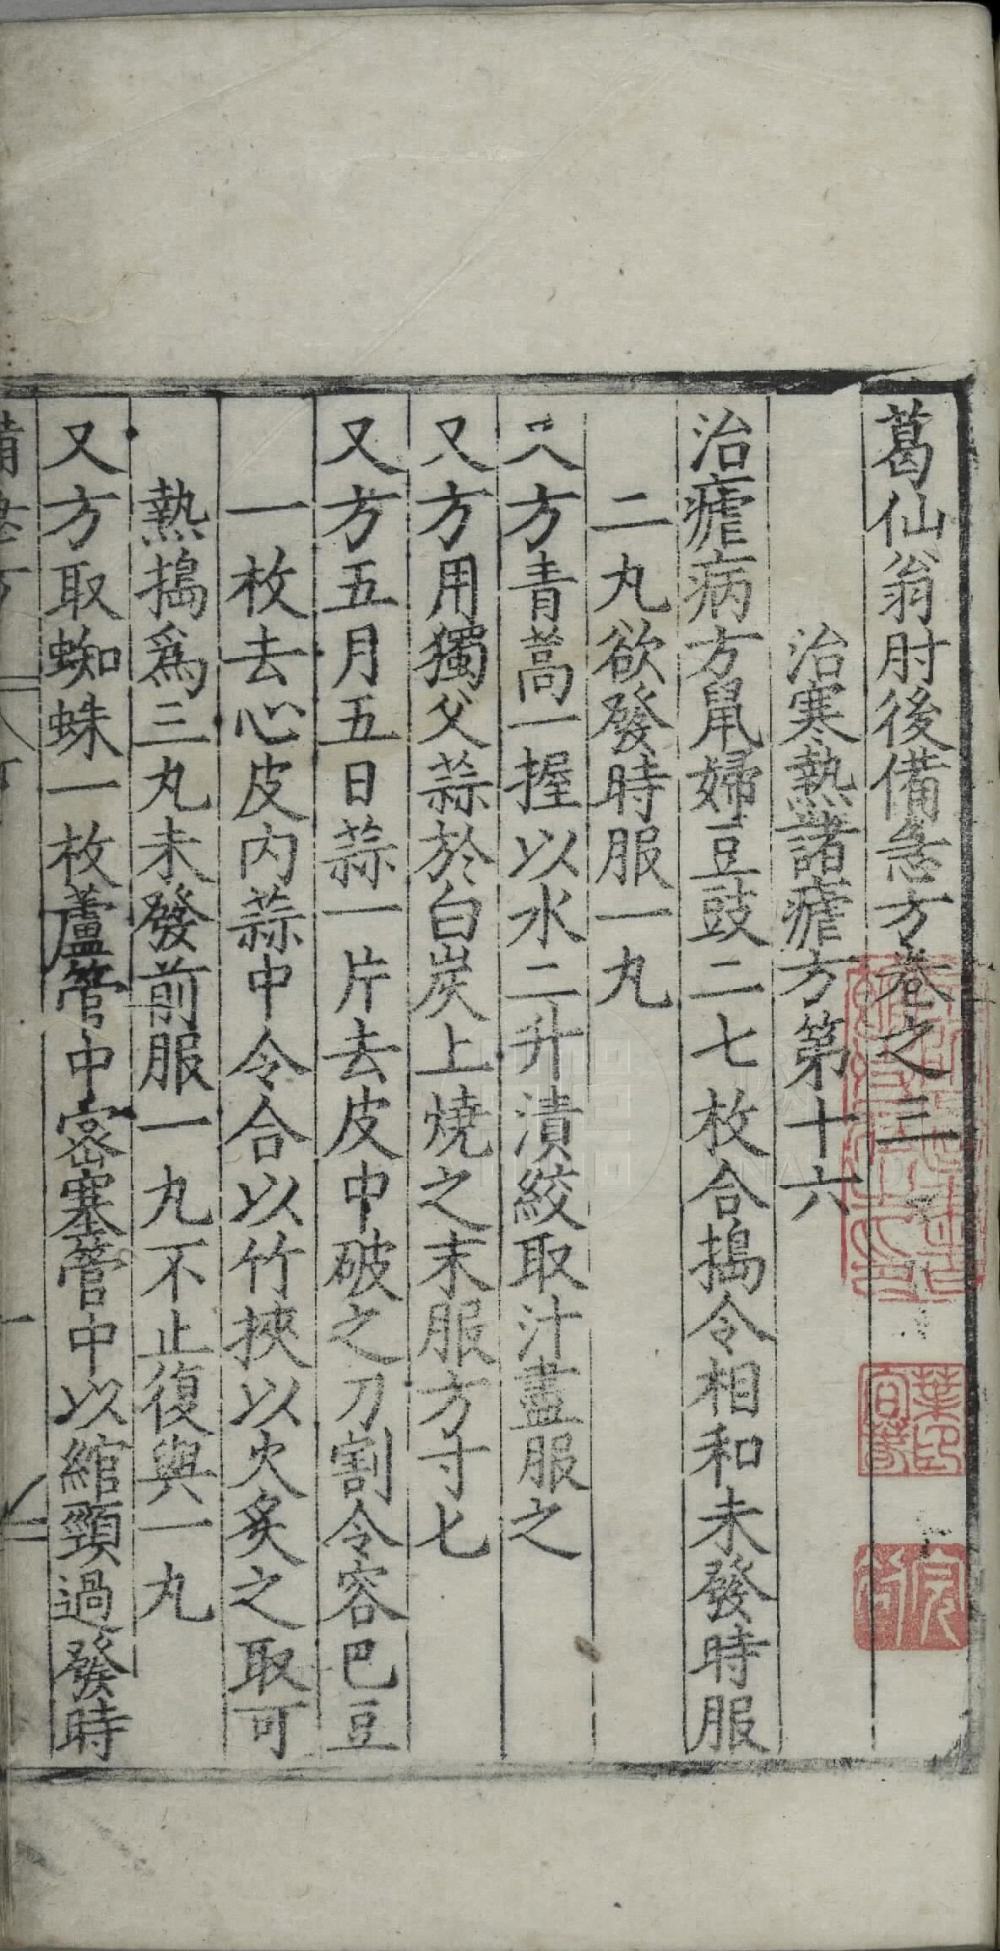 葛仙翁肘後備急方卷之三
治寒熱諸瘧方第十六
治瘧病方鼠婦豆豉二七枚合搗令相和未發時服
二丸欲發時服一丸
又方青蒿一握以水二升漬絞取汁盡服之
又方用獨父蒜於白炭上燒之末服方寸匕
又方五月五日蒜一片去皮中破之刀割令容巴豆
一枚去心皮內蒜中令合以竹挾以火炙之取可
熱搗爲三丸未發前服一丸不止復與一丸
又方取蜘蛛一枚蘆管中密塞管中以綰頸過發時